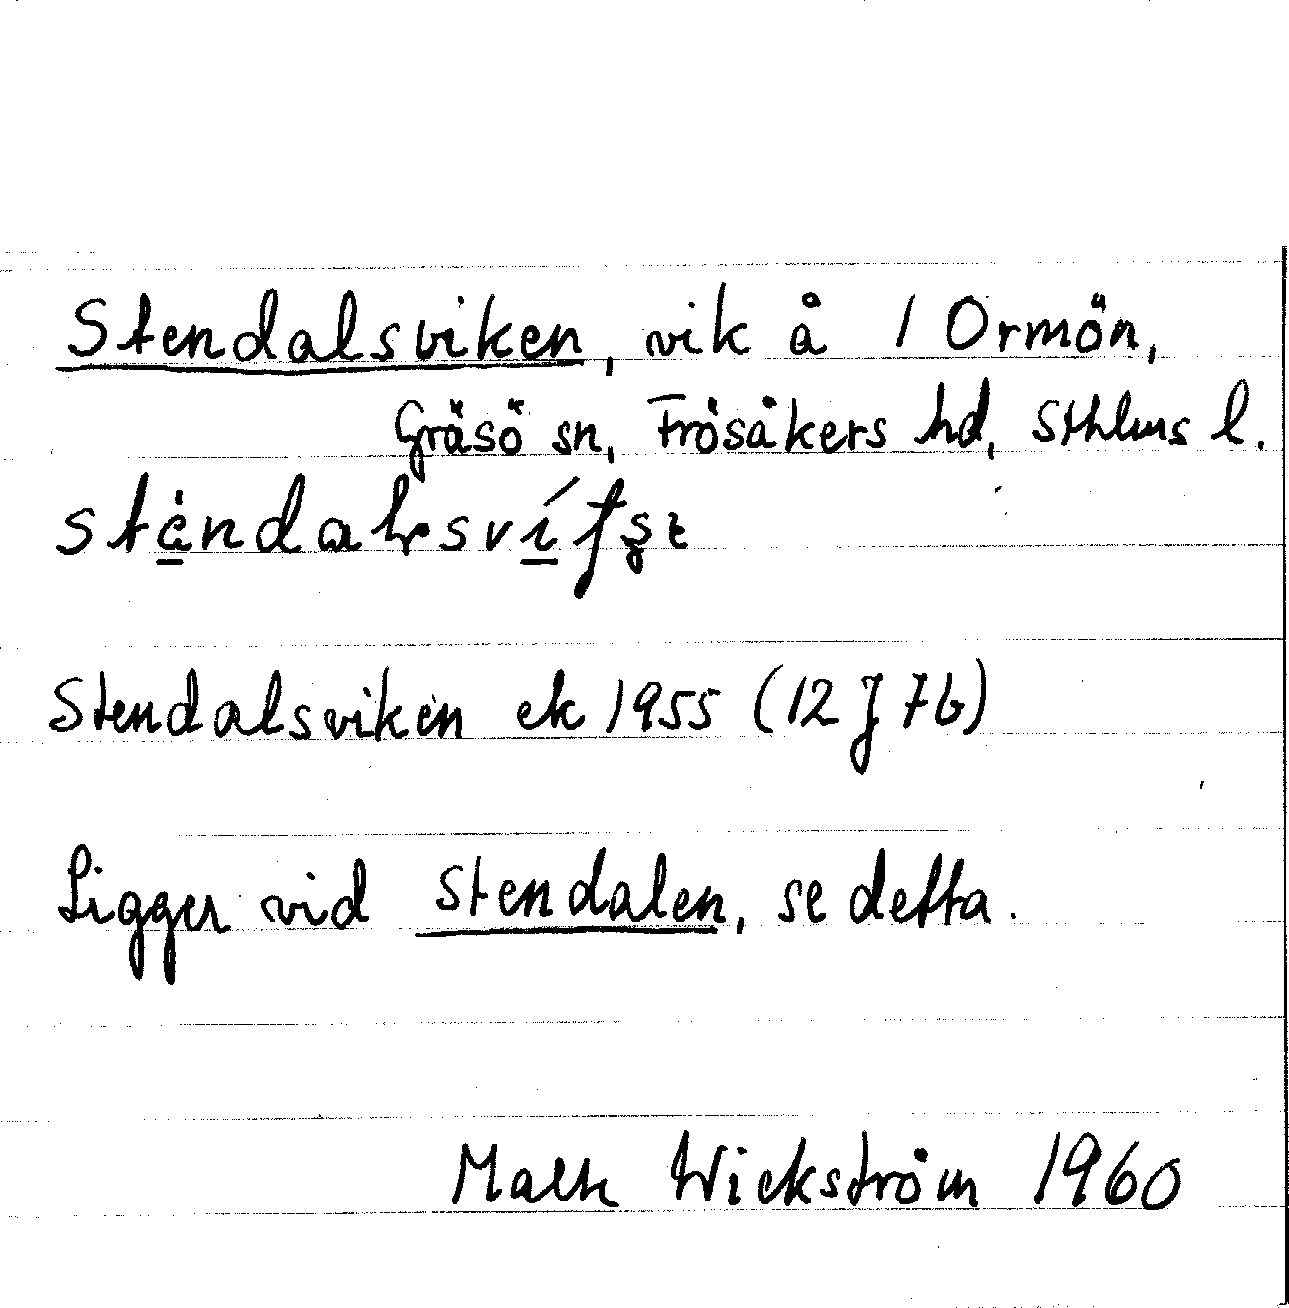 Stendalsviken, vik å / Ormön,
Gräsö sn, Frösåkers hd, Sthlms l.
Stendalsviken ek 1955 (12 J 7b)
Ligger vid Stendalen, se detta.
Wickström 1960